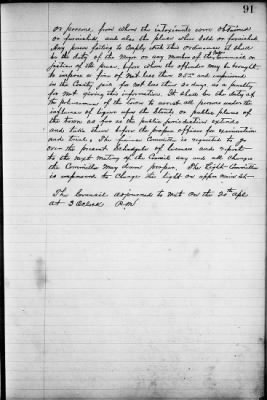 91
or persons, from whom the intoxicants were obtained
or furnished, and also the place when sold or furnished
Any person failing to comply with this ordinance it shall
be the duty of the Mayor or any member of the Council or
justice of the peace, before whom the offender may be brought
to impose a fine of not less than 25.00 and imprisoned
in the County jail for not less than 30 days, as a penalty
for not giving this information. It shall be the duty of
the policeman of the town to arrest all persons under the
influence of liquor upon the streets or public places of
the town as far as the public jurisdiction extends
and take them before the proper officer for examination
and trial. The License Committee is requested to go
over the present Schedule of licenses and report
to the next meeting of the Council any and all changes
the Committee may deem proper. The Light Committee
is empowered to change the light on upper main St.
The Council adjourned to meet on the 20th Apl
at 3 Oclock P.M.